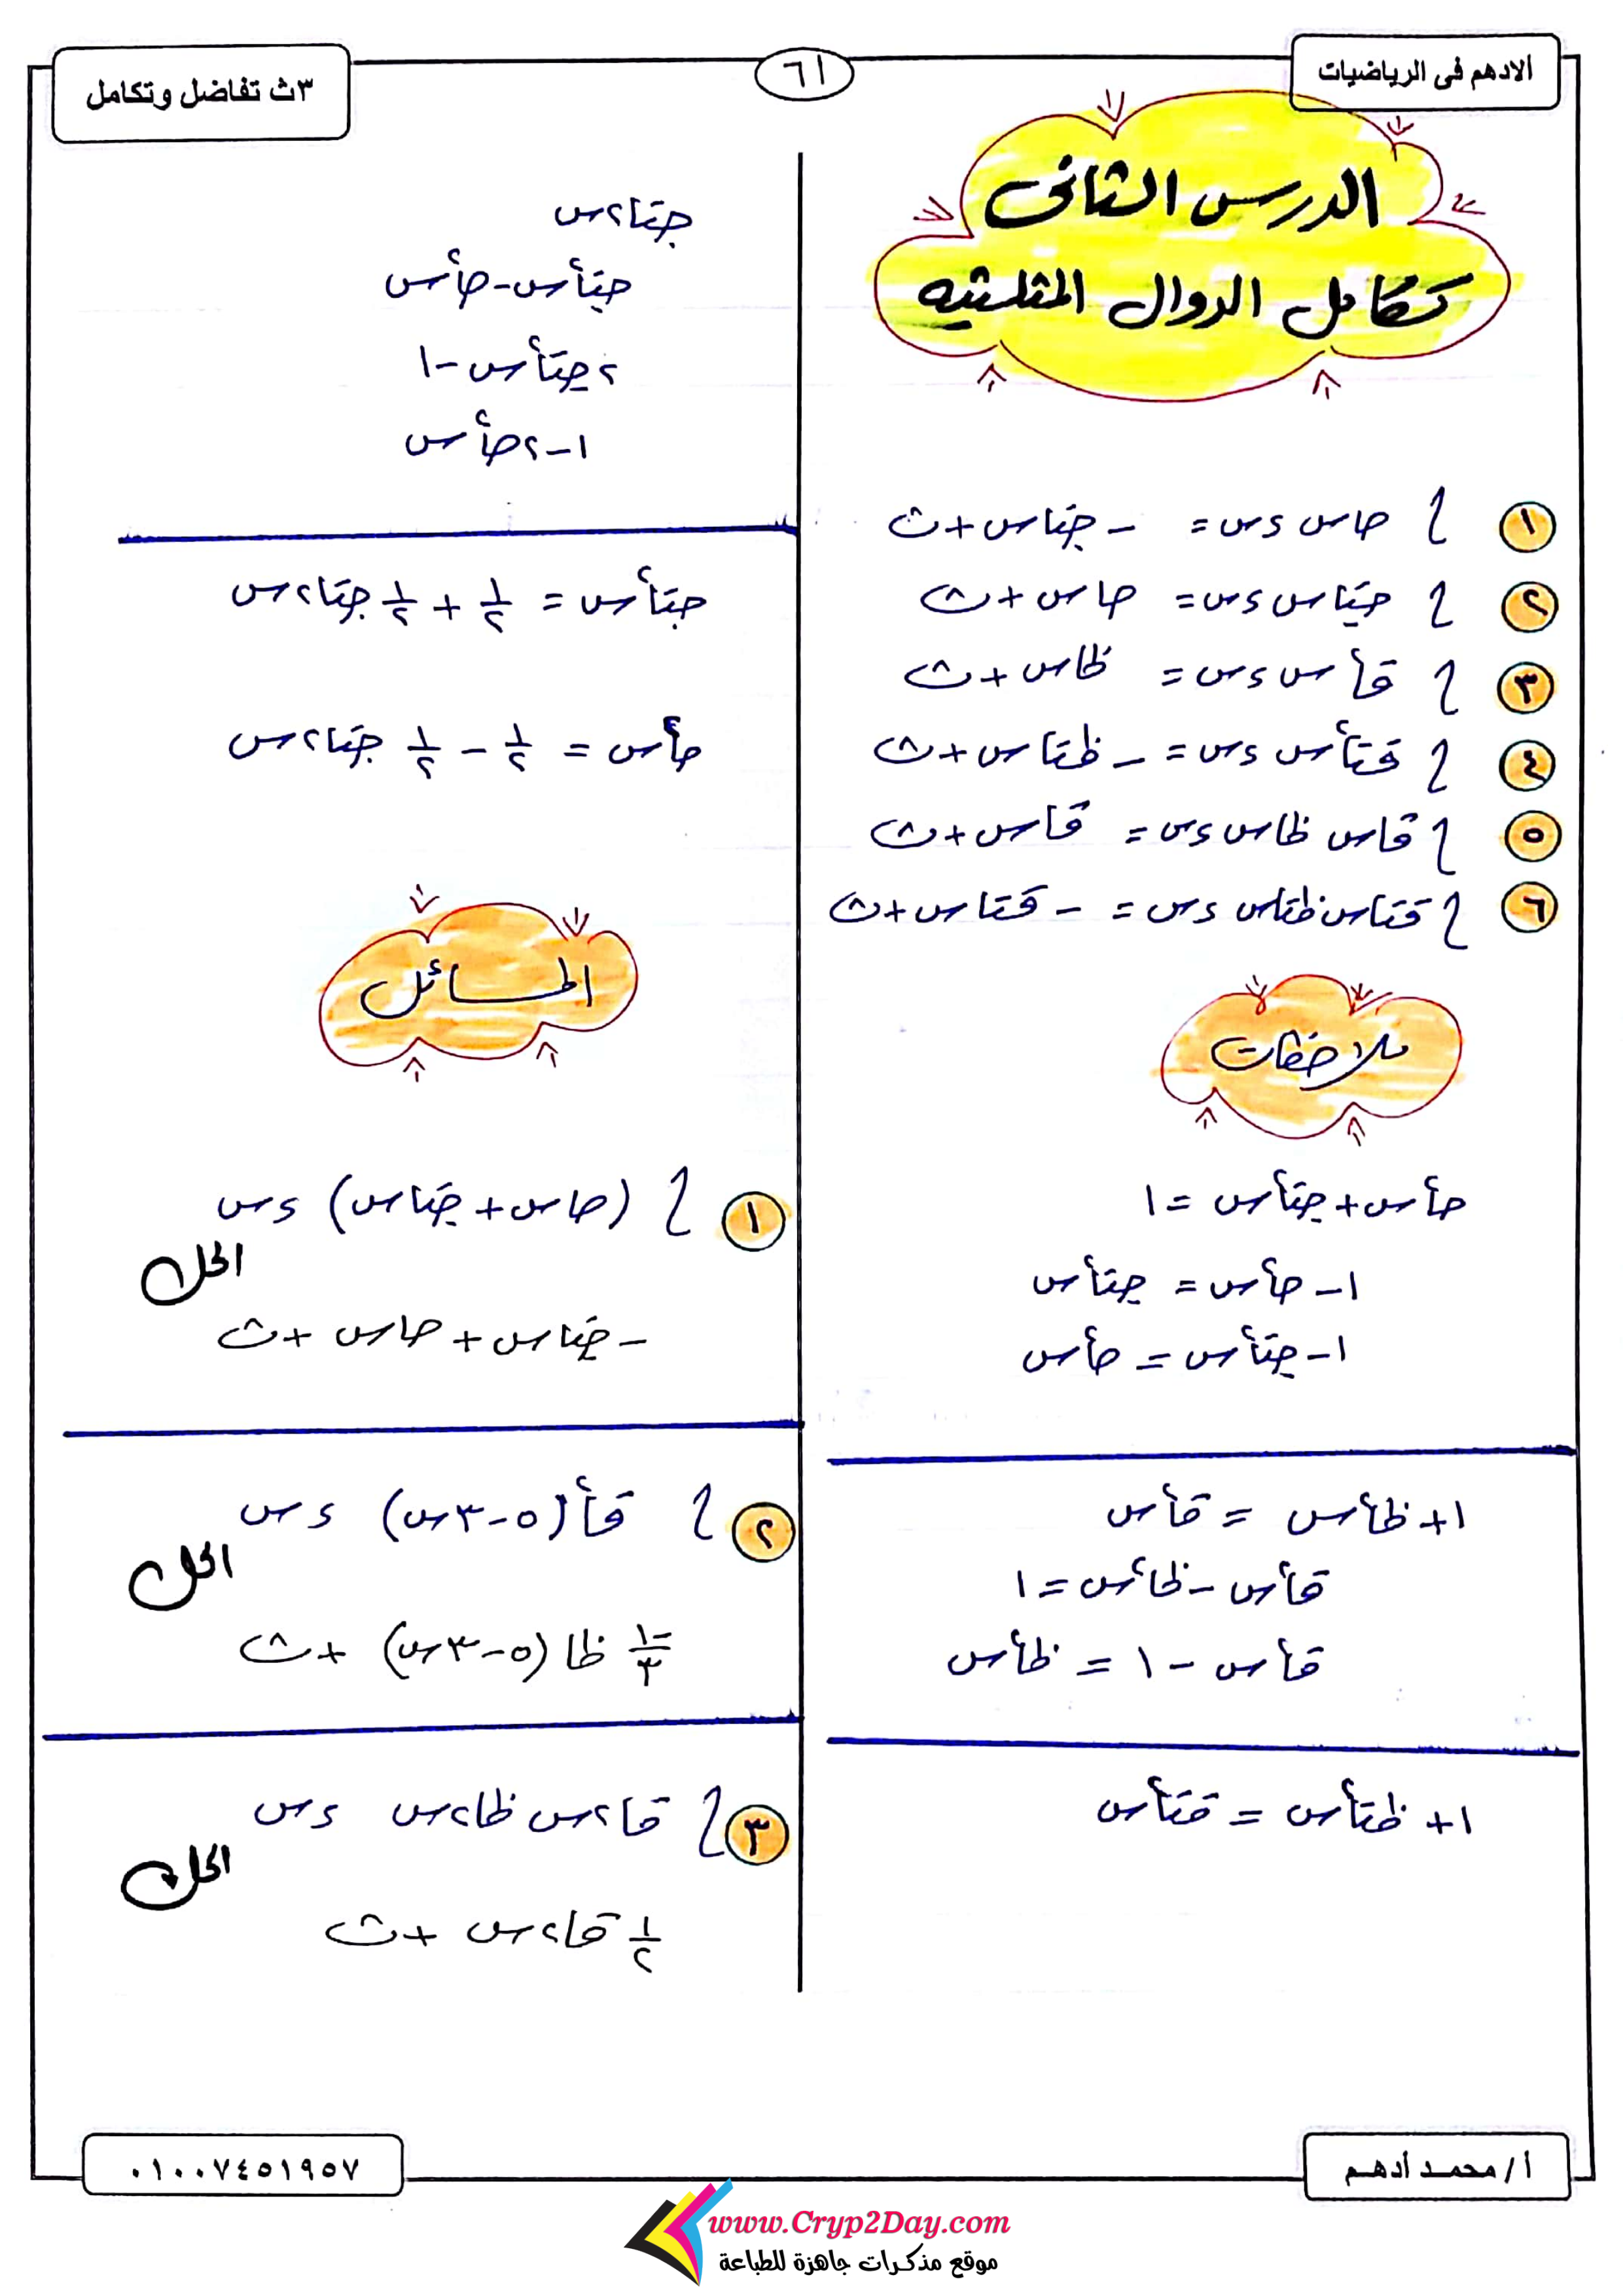 الادهم فى الرياضيات
٦١
٣ث تفاضل وتكامل
الدرس الثانى
تكامل الدوال المثلثيه
١ ∫ حاس ءس = - جتاس + ث
٢ ∫ جتاس ءس = حاس + ث
٣ ∫ قا٢س ءس = ظاس + ث
٤ ∫ قتا٢س ءس = - ظتاس + ث
٥ ∫ قاس ظاس ءس = قاس + ث
٦ ∫ قتاس ظتاس ءس = - قتاس + ث
ملاحظات
حا٢س + جتا٢س = ١
١ - حا٢س = جتا٢س
١ - جتا٢س = حا٢س
١ + ظا٢س = قا٢س
قا٢س - ظا٢س = ١
قا٢س - ١ = ظا٢س
١ + ظتا٢س = قتا٢س
جتا٢س
جتا٢س - حا٢س
٢ جتا٢س - ١
١ - ٢ حا٢س
جتا٢س = ١/٢ + ١/٢ جتا٢س
حا٢س = ١/٢ - ١/٢ جتا٢س
المسائل
١ ∫ (حاس + جتاس) ءس
الحل
- جتاس + حاس + ث
٢ ∫ قا٢ (٥ - ٣س) ءس
الحل
-١/٣ ظا (٥ - ٣س) + ث
٣ ∫ قا٢س ظا٢س ءس
الحل
١/٢ قا٢س + ث
أ / محمد أدهم
٠١٠٠٧٤٥١٩٥٧
www.Cryp2Day.com
موقع مذكرات جاهزة للطباعة